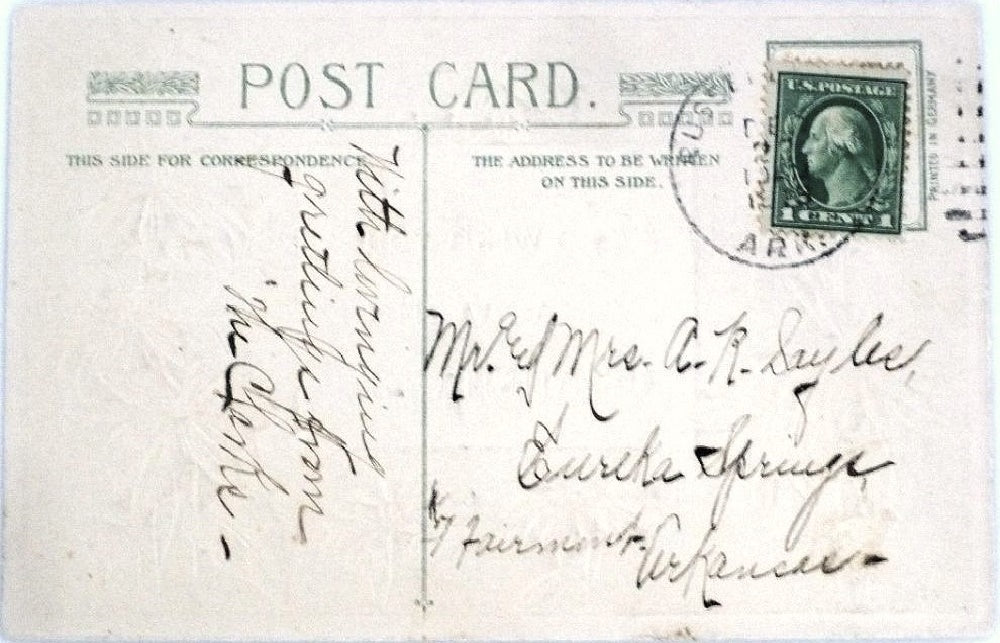 POST CARD.
THIS SIDE FOR CORRESPONDENCE
THE ADDRESS TO BE WRITTEN
ON THIS SIDE.
U.S. POSTAGE
1 CENT 1
PRINTED IN GERMANY
ARK.
With loving
greetings from
the Clarks -
Mr. & Mrs. A. R. Sayles,
Eureka Springs,
Fairmount
Arkansas -